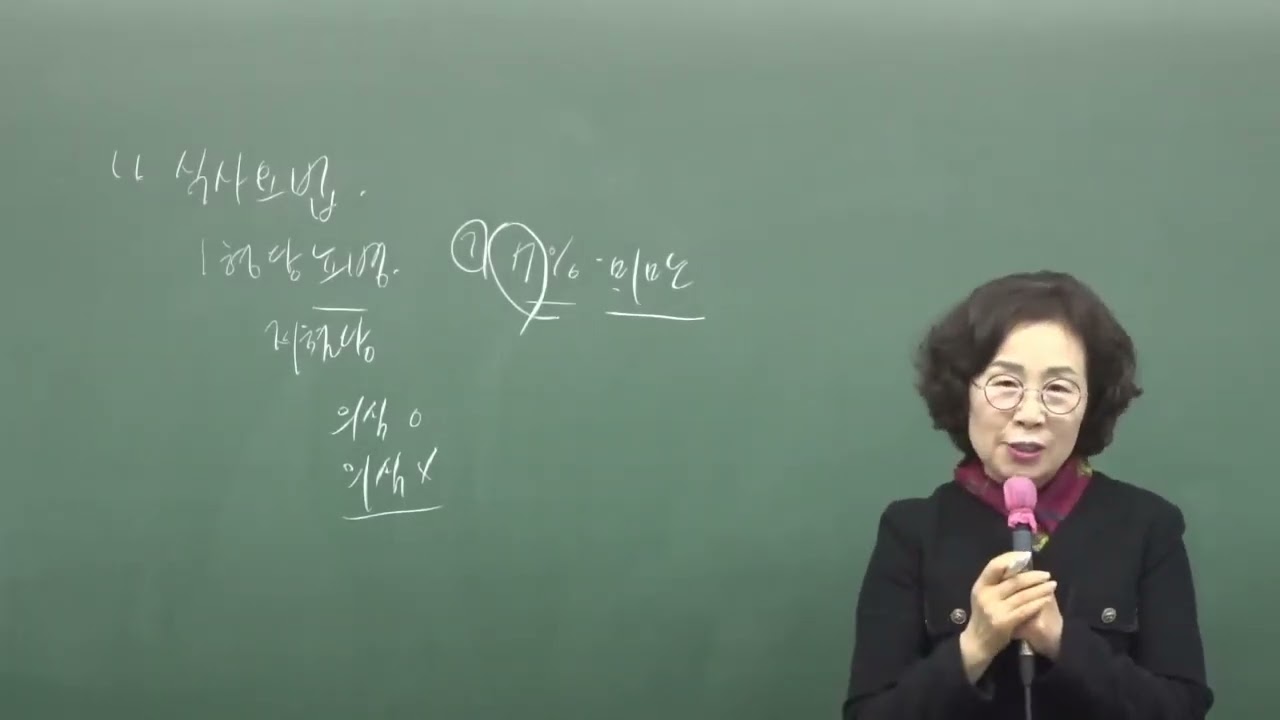 식사요법.
1 혈당
② 7% 미만
저혈당
의식 o
의식 x